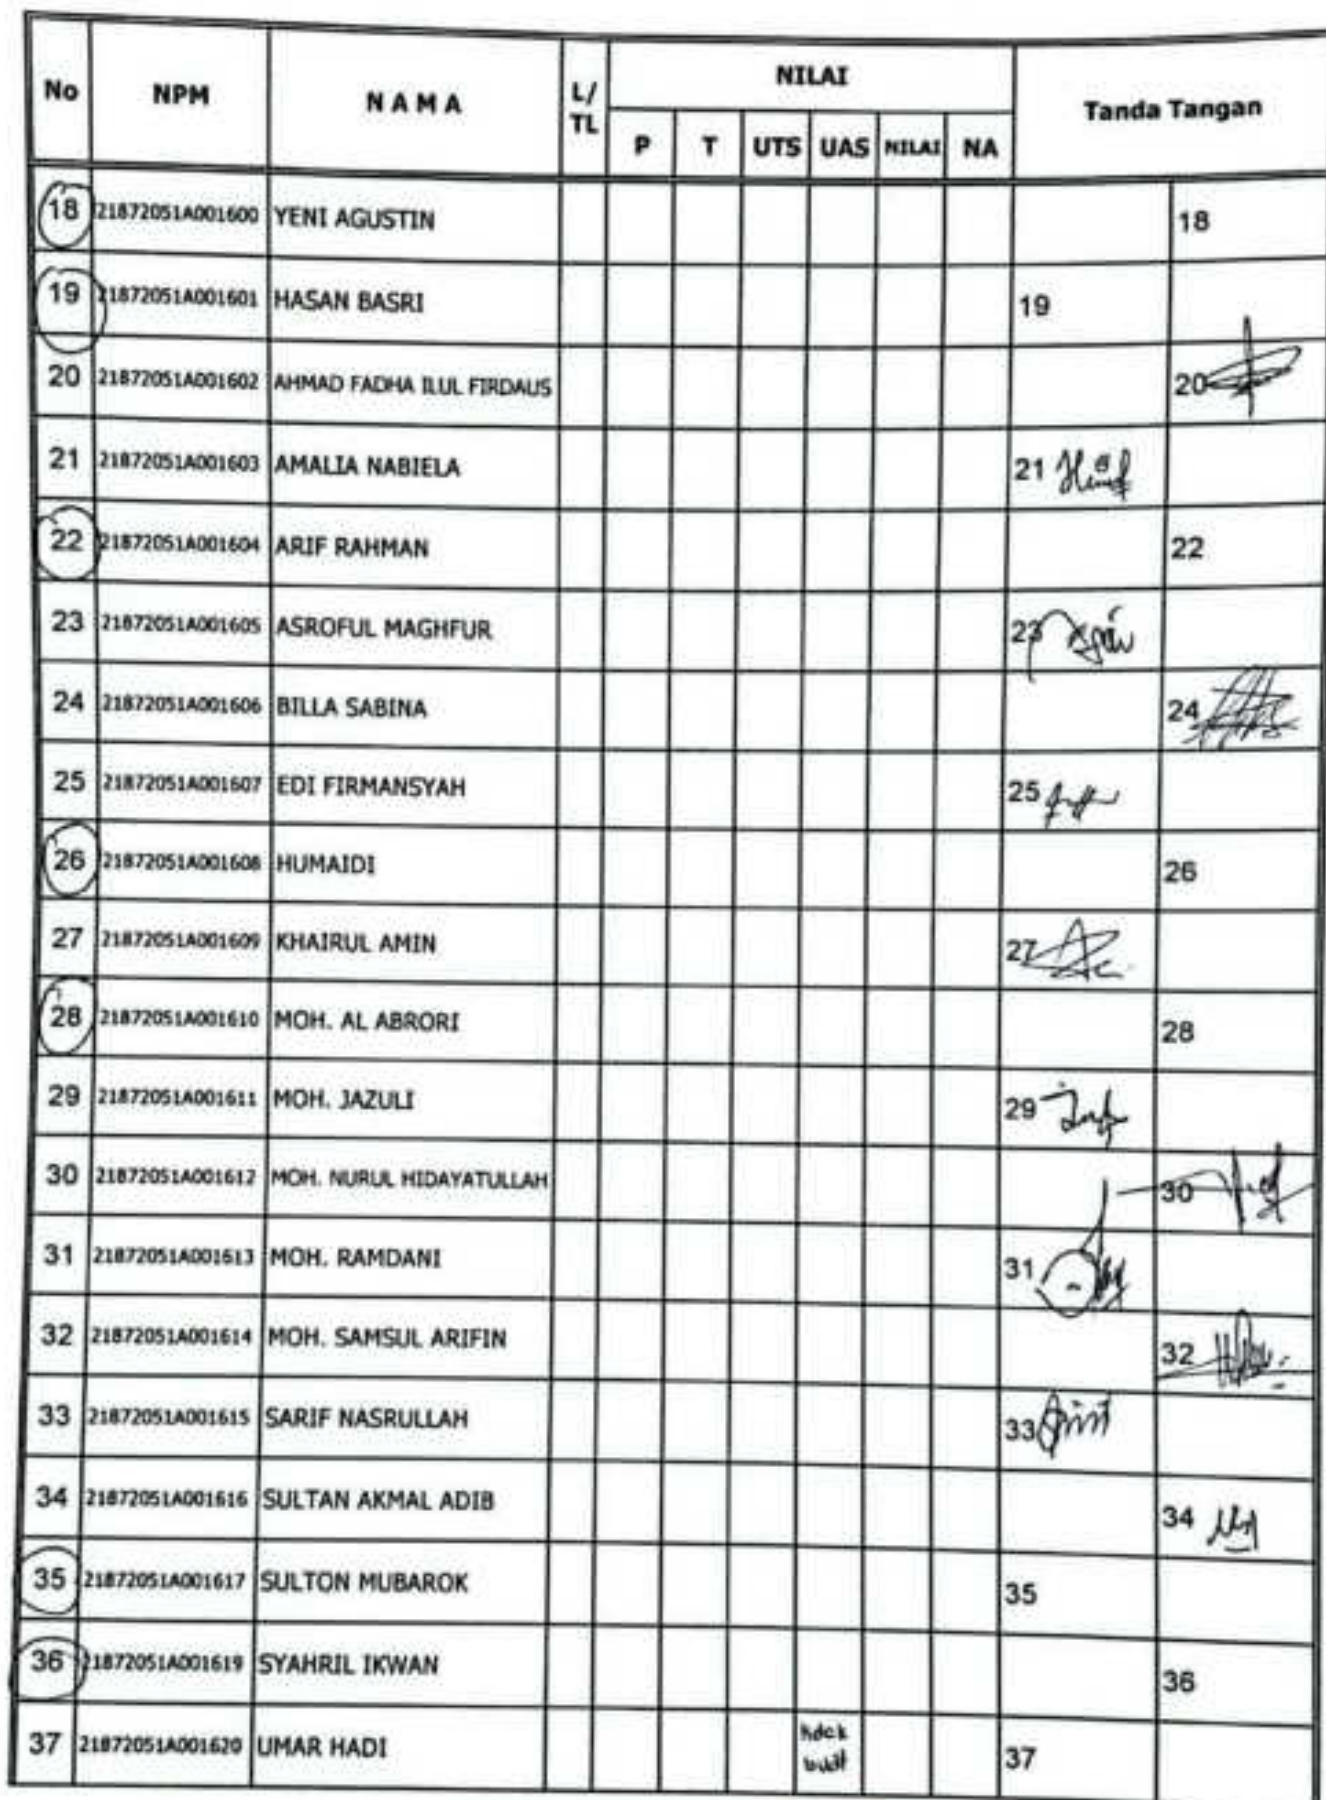 No NPM N A M A L/TL NILAI Tanda Tangan
P T UTS UAS NILAI NA
18 21872051A001600 YENI AGUSTIN 18
19 21872051A001601 HASAN BASRI 19
20 21872051A001602 AHMAD FADHA ILUL FIRDAUS 20
21 21872051A001603 AMALIA NABIELA 21
22 21872051A001604 ARIF RAHMAN 22
23 21872051A001605 ASROFUL MAGHFUR 23
24 21872051A001606 BILLA SABINA 24
25 21872051A001607 EDI FIRMANSYAH 25
26 21872051A001608 HUMAIDI 26
27 21872051A001609 KHAIRUL AMIN 27
28 21872051A001610 MOH. AL ABRORI 28
29 21872051A001611 MOH. JAZULI 29
30 21872051A001612 MOH. NURUL HIDAYATULLAH 30
31 21872051A001613 MOH. RAMDANI 31
32 21872051A001614 MOH. SAMSUL ARIFIN 32
33 21872051A001615 SARIF NASRULLAH 33
34 21872051A001616 SULTAN AKMAL ADIB 34
35 21872051A001617 SULTON MUBAROK 35
36 21872051A001619 SYAHRIL IKWAN 36
37 21872051A001620 UMAR HADI 37